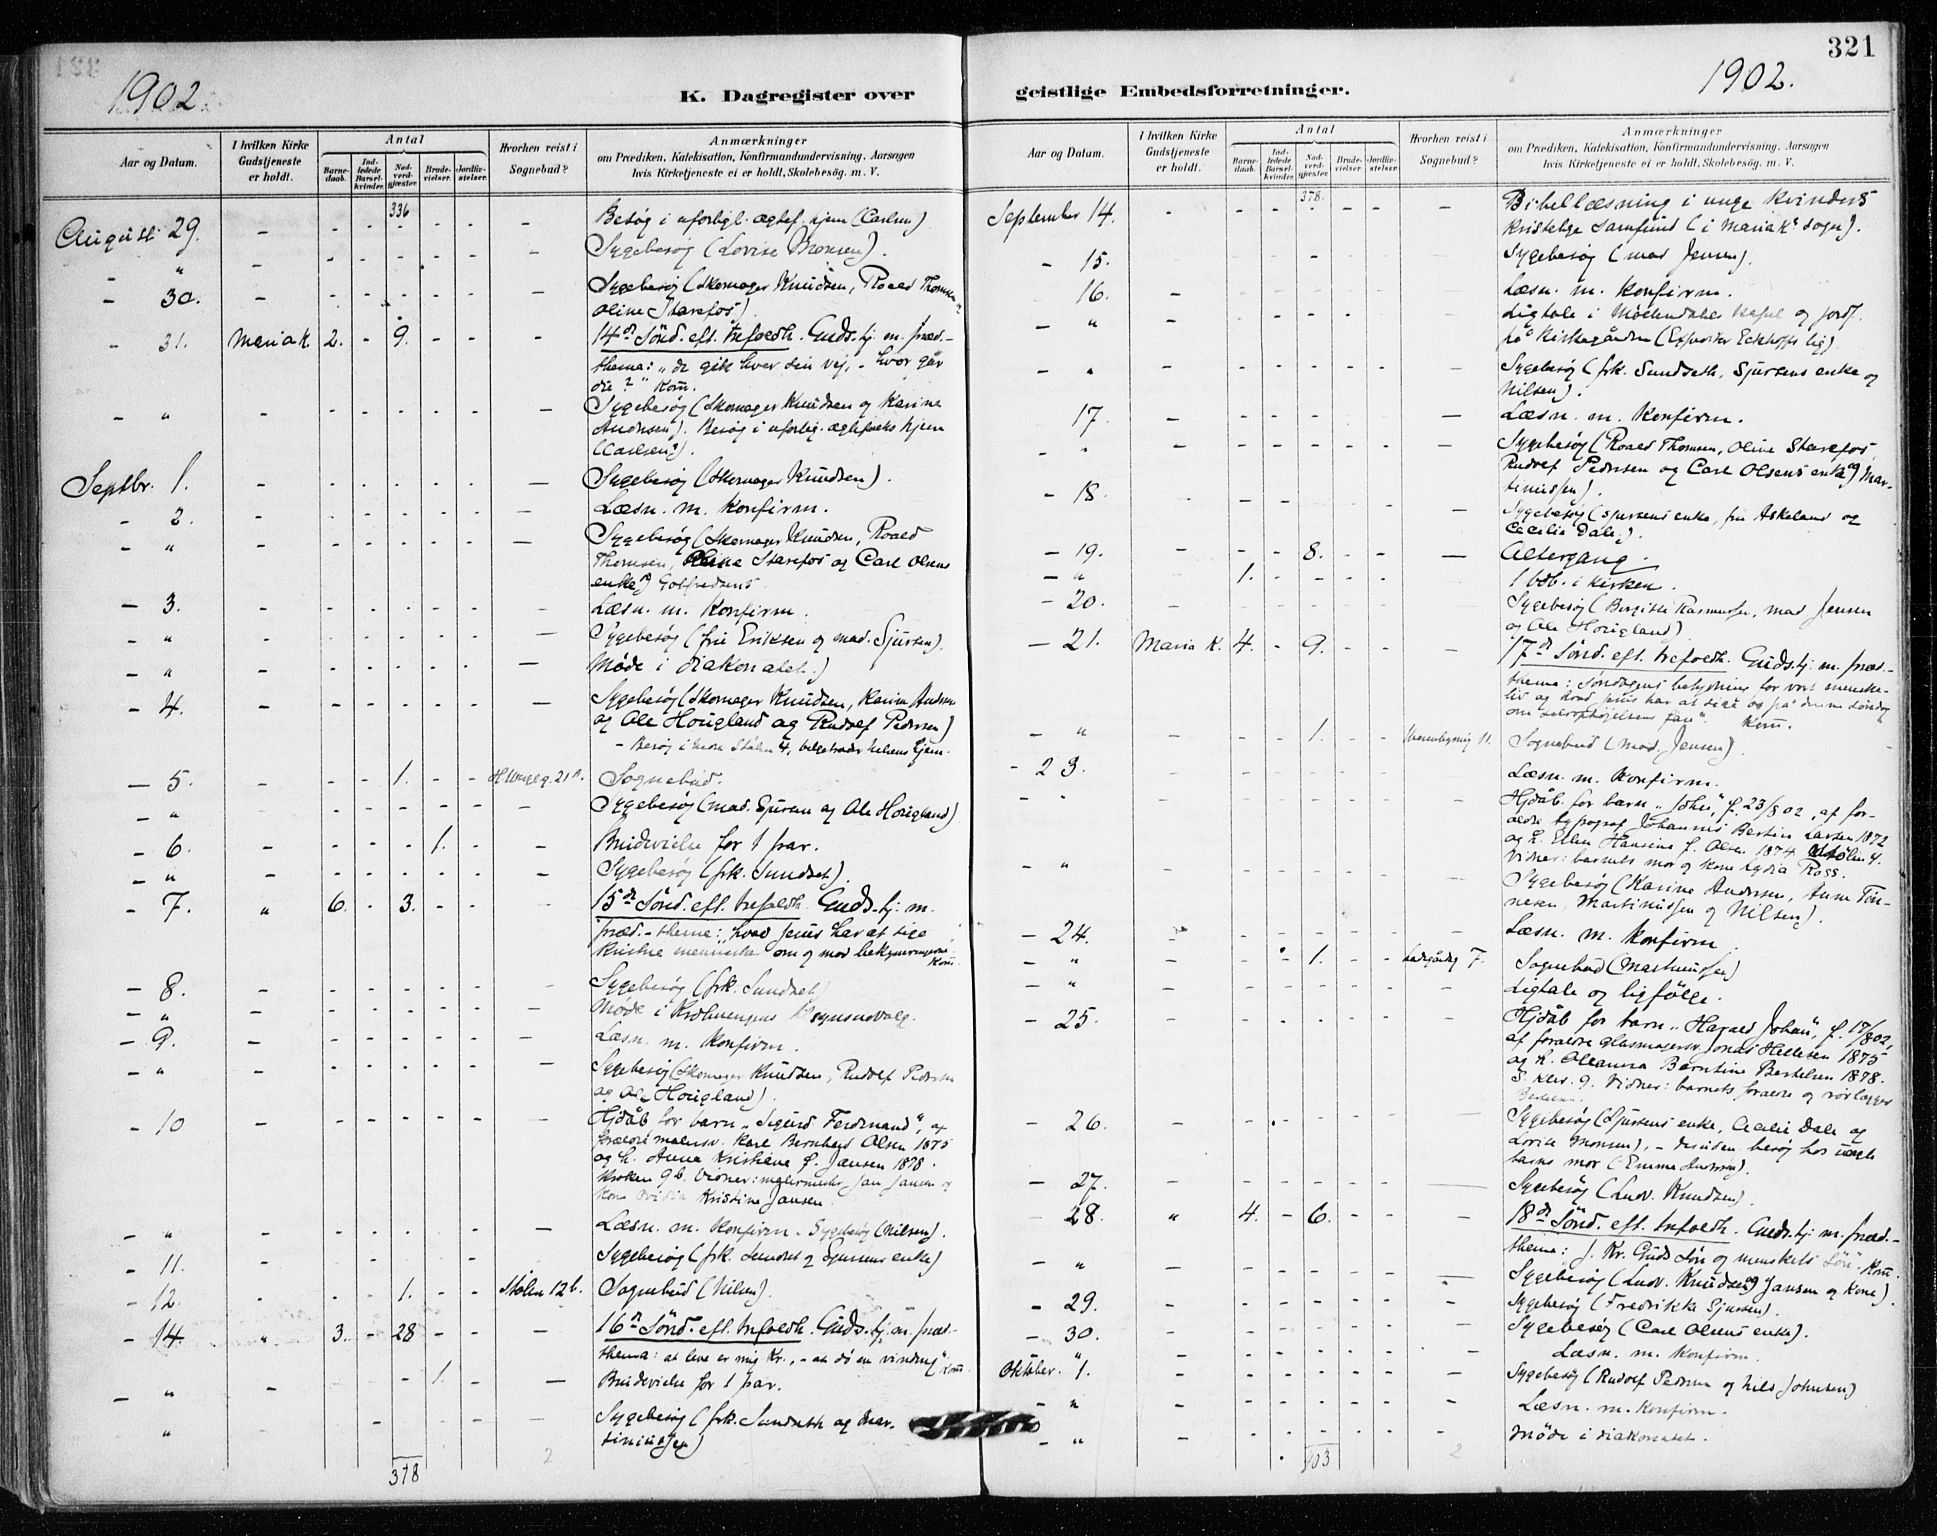 321
1902.
K. Dagregister over
geistlige Embedsforretninger.
1902.
Aar og Datum.
I hvilken Kirke Gudstjeneste er holdt.
Antal
Barnedaab.
Indledede Barselkvinder.
Nadverdgjæster.
Brudevielser.
Jordfæstelser.
Hvorhen reist i Sognebud?
Anmærkninger
om Prædiken, Katekisation, Konfirmandundervisning. Aarsagen
hvis Kirketjeneste ei er holdt, Skolebesøg. m. V.
336
August 29. - - - - - - - Besøg i uforligt. ægtef. hjem (Carlsen)
- " - - - - - - - Sygebesøg (Lovise Monsen).
- 30. - - - - - - - Sygebesøg (Skomager Knudsen, Roald Thomsen,
Oline Starefos)
- 31. Maria K. 2. - 9. - - - 14de Sønd. eft. trefoldh. Guds.tj. m. præd.-
thema: "de gik hver sin vej, - hvor går
du?" Kom.
- " - - - - - - - Sygebesøg (Skomager Knudsen og Karine
Andersen). Besøg i uforlig. ægtefolks hjem
(Carlsen).
Septbr. 1. - - - - - - - Sygebesøg (Skomager Knudsen).
- 2. - - - - - - - Læsn. m. Konfirm.
- " - - - - - - - Sygebesøg (Skomager Knudsen, Roald
Thomsen, Starefos og Carl Olsens
enke)
- 3. - - - - - - - Læsn. m. Konfirm.
- " - - - - - - - Sygebesøg (fru Eriksen og mad. Sjursen).
- " - - - - - - - Møde i diakonatet.
- 4. - - - - - - - Sygebesøg (Skomager Knudsen, Karine Andersen
og Ole Hougland og Rudolf Pedersen)
- Besøg i Stølen 4,
- 5. - - - 1. - - 21 Sognebud.
- " - - - - - - - Sygebesøg (mad. Sjursen og Ole Hougland)
- 6. - - - - 1. - - Brudevielse for 1 par.
- " - - - - - - - Sygebesøg (frk. Sundset).
- 7. " 6. - 3. - - - 15de Sønd. eft. trefoldh. Guds.tj. m.
præd. - thema: "hvad Jesus har at sige
kristne mennesker om og mod bekymringerne" Kom.
- 8. - - - - - - - Sygebesøg (frk. Sundset)
- " - - - - - - - Møde i
- 9. - - - - - - - Læsn. m. Konfirm.
- " - - - - - - - Sygebesøg (Skomager Knudsen, Rudolf Pedersen
og Ole Hougland).
- 10 - - - - - - - Hjdåb for barn "Sigurd Ferdinand", af
forældre malersv. Karl Bernhard Olsen 1875
og h. Anna Kristiane f. Jansen 1878.
Kroken 9b. Vidner: malermester Jan Jansen og
kone Kristine Jansen.
- " - - - - - - - Læsn. m. Konfirm - Sygebesøg (Nilsen).
- 11. - - - - - - - Sygebesøg (frk. Sundset og Sjursens enke)
- 12. - - - 1. - - Stølen 12b. Sognebud (Nilsen).
- 14. " 3. - 28 - - - 16de Sønd. eft. trefoldh. Guds.tj. m. præd.-
thema: at leve er mig Kr., - at dø en vinding" Kom
- " - - - - 1. - - Brudevielse for 1 par.
" - - - Sygebesøg (frk. Sundseth og Mar-
tinussen)
378
Aar og Datum.
I hvilken Kirke Gudstjeneste er holdt.
Antal
Barnedaab.
Indledede Barselkvinder.
Nadverdgjæster.
Brudevielser.
Jordfæstelser.
Hvorhen reist i Sognebud?
Anmærkninger
om Prædiken, Katekisation, Konfirmandundervisning. Aarsagen
hvis Kirketjeneste ei er holdt, Skolebesøg. m. V.
378.
September 14. - - - - - - - Bibellæsning i unge kvinders
kristelige Samfund (i Mariak. sogn).
- 15. - - - - - - - Sygebesøg (mad Jensen).
16. - - - - - - - Læsn. m. Konfirm.
- " - - - - - - - Ligtale i Møllendals kapel og jordf.
på kirkegården (Eckhoffs lig)
- " - - - - - - - Sygebesøg (frk. Sundseth, Sjursens enke og
Nilsen).
17. - - - - - - - Læsn. m. Konfirm.
- " - - - - - - - Sygebesøg (Roald Thomsen, Oline Starefos,
Rudolf Pedersen og Carl Olsens enke og Mar-
tinussen).
- 18. - - - - - - - Sygebesøg (Sjursens enke, fru Askeland og
Cecilie Dale).
- 19. - - - 8. - - - Altergang.
- " 1. - - - - 1 bdb. i kirken.
- 20. Sygebesøg (Birgitte Rasmussen, mad Jensen
og Ole Hougland)
- 21. Maria K. 4. - 9. - - - 17de Sønd. eft. trefoldh. Guds.tj. m. præd.-
thema: Søndagens betydning for vort menneske-
liv og hvad Jesus har at sige os på denne søndag
om selvophøjelsens fare". Kom.
- " - - - 1. - - 11. Sognebud (mad. Jensen).
- 23. - - - - - - - Læsn. m. Konfirm.
- " - - - - - - - Hjdåb. for barn "John", f. 23/8 02, af for-
ældre typograf Johannes Bertin Larsen 1872
og h. Ellen Hansine f. Olsen 1874 Stølen 4.
Vidner: barnets mor og kone Lydia Ross.
" - - - - - - - Sygebesøg (Karine Andersen, Anne Tön-
nesen, Martinussen og Nilsen).
- 24. - - - - - - - Læsn. m. Konfirm.
- " - - - 1. - - Ladegårdsg 7. Sognebud (Martinussen)
- " - - - - - - - Ligtale og ligfølge.
- 25. - - - - - - - Hjdåb for barn "Harald Johan", f. 17/8 02,
af forældre glasmagersv. Jonas Hellesen 1875
og h. Oleanna Berntine Bertelsen 1878.
Vidner: barnets forældre og rørlægger
- 26. - - - - - - - Sygebesøg (Sjursens enke, Cecilie Dale og
Lovise Monsen), - desuden besøg hos uægte
barns mor (Emma).
- 27. - - - - - - - Sygebesøg (Ludv. Knudsen).
- 28. " 4. - 6. - - - 18de Sønd. eft. trefoldh. Guds.tj. m. præd.-
thema: J. Kr. Guds søn og menskets søn". Kom.
- " - - - - - - - Sygebesøg (Ludv. Knudsen og Jansen og kone).
- 29. - - - - - - - Sygebesøg (Fredrikke Sjursen).
- 30. - - - - - - - Sygebesøg (Carl Olsens enke).
" - - - - - - - Læsn. m. Konfirm.
Oktober. 1. - - - - - - - Sygebesøg (Rudolf Pedersen og Nils Johnsen)
- " - - - - - - - Læsn. m. Konfirm.
- " - - - - - - - Møde i diakonatet.
403